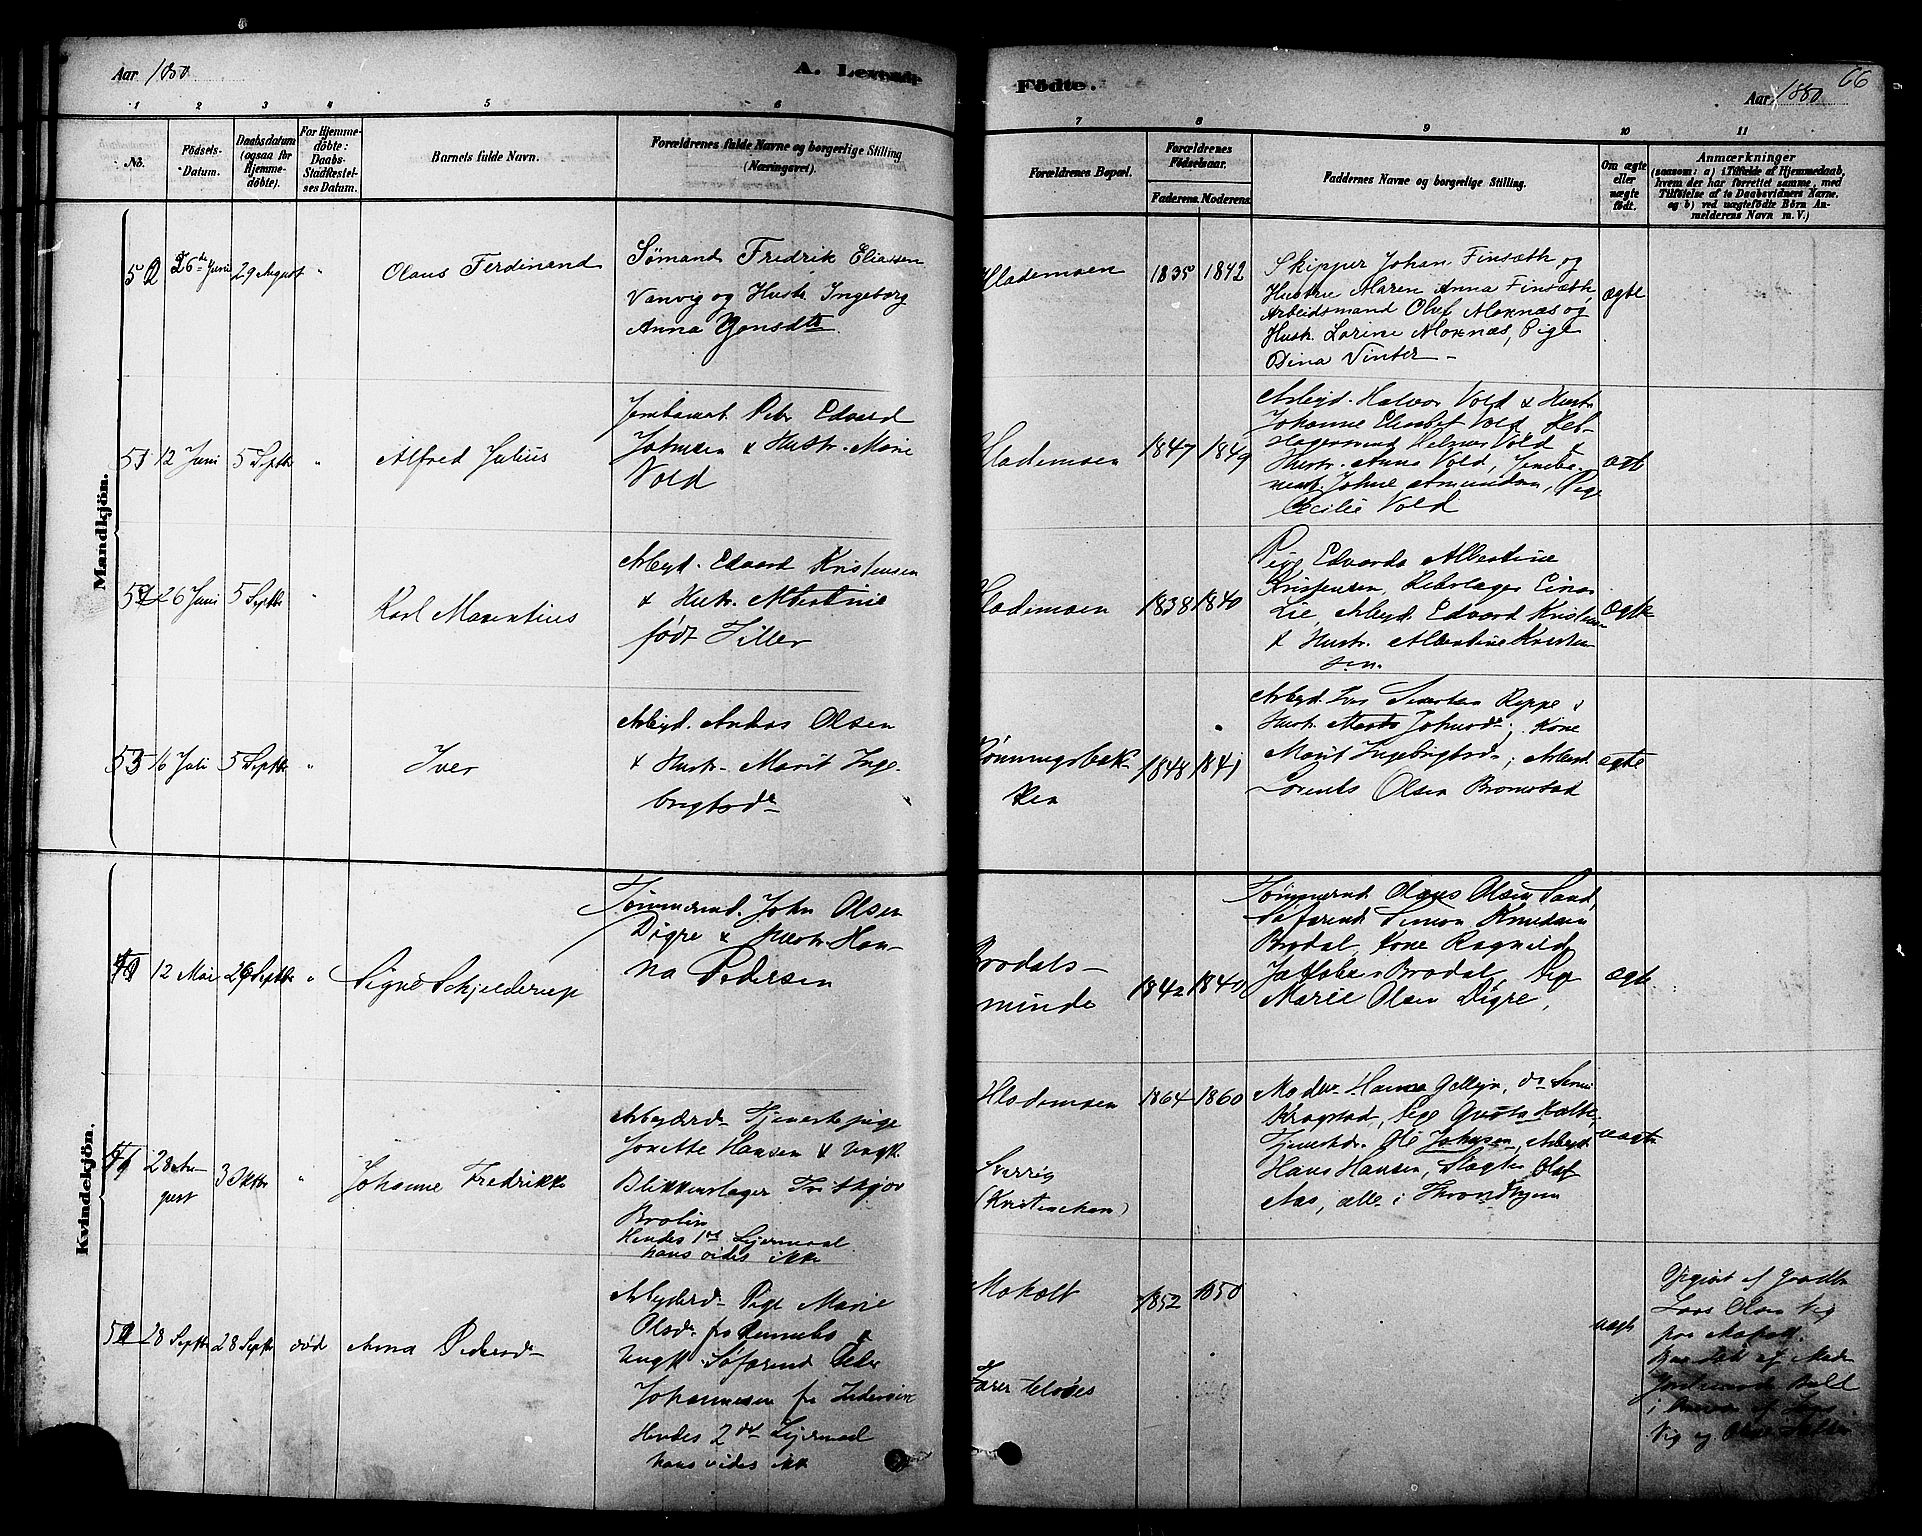 Aar 1880
A. Levende
Fødte.
Aar 1880
66
1 2 3 4 5 6 7 8 9 10 11
No.
Fødsels-
Datum.
Daabsdatum
(ogsaa for
Hjemme-
döbte).
For Hjemme-
döbte:
Daabs-
Stadfæstel-
ses Datum.
Barnets fulde Navn.
Forældrenes fulde Navne og borgerlige Stilling
(Næringsvei).
Forældrenes Bopæl.
Forældrenes
Födselsaar.
Faderens. Moderens.
Faddernes Navne og borgerlige Stilling.
Om ægte
eller
uægte
födt.
Anmærkninger
(saasom: a) i Tilfælde af Hjemmedaab,
hvem der har forrettet samme, med
Tilföielse af to Daabsvidners Navne,
og b) ved uægtefödte Börn An-
melderens Navn m. V.)
Mandkjön.
50
26de Juni
29 August
"
Olaus Ferdinand
Sømand Fredrik Eliassen
Vanvig og Hustr. Ingeborg
Anna Jensdtr
Hlademoen
1835
1842
Skipper Johan Finsæth og
Hustru Maren Anna Finsæth,
Arbeidsmand Olef Moxnæs og
Hustr. Larine Moxnæs, Pige
Dina Vinter –
ægte
51
12 Juni
5 Septbr
"
Alfred Julius
Jernbanearb. Peter Edvard
Johnsen & Hustr. Marie
Vold
Hlademoen
1847
1849
Arbeid. Halvor Vold & Hustr.
Johanne Elisabet Vold, Reb-
slagersvend Vold &
Hustr. Anna Vold,
Amundsen, Pige
Cecilie Vold
ægte
52
26 Juni
5 Septbr
"
Karl Marentius
Arbejd. Edvard Kristensen
& Hustr. Albertine
født Tiller
Hlademoen
1838
1840
Pige Edvarda Albertine
Kristensen, Rebslager Einar
Lie, Arbejd. Edvard Kristensen
& Hustr. Albertine Kristen-
sen.
ægte
53
16 Juli
5 Septbr
"
Iver
Arbejd. Andas Olsen
& Hustr. Marit Inge-
brigtsdr
Rønningsbak-
ken
1848
1841
Arbejd. Iver Sivertsen Reppe &
Hustr. Johnsdr; Kone
Marit Ingebrigtsdr; Arbeid.
Lorents Olsen Bromstad
ægte
Kvindekjön.
12 Mai
26 Septbr
"
Signe Schjelderup
Tømmermd. John Olsen
Digre & Hustr. Han-
na Pedersen
Brodals-
minde
1842
1840
Tømmermd. Olaus Olsen Sand,
Søfarend. Simon Knudsen
Brodal, Kone Ragnild
Jakobsen Brodal, Pige
Marie Olsen Digre,
ægte
28 Au-
gust
3 Oktbr
"
Johanne Fredrikke
Arbejderd. Tjenestepige
Jonette Hansen & Ungk.
Blikkenslager
Brolin
Hendes 1ste Lejermaal
hans vides ikke
Hlademoen
Sverrig
(Kristinehavn)
1864
1860
Moder Hanna
Krogstad, Pige
Tjenestdr. Ole Johnsen, Arbejd.
Hans Hansen, Slagter Olaf
Aas, alle i Throndhjem
uægte
52
28 Septbr
28 Septbr
død
Anna Pedersdr
Arbejderd. Pige Marie
Olsdr. fra Rennebo &
Ungk. Søfarend Peder
Johannesen fr
Hendes 2det Lejermaal
hans vides ikke
Moholt
1852
1850
uægte
Opgivet af Gaardbr
Lars Olsen Vig
paa Moholt.